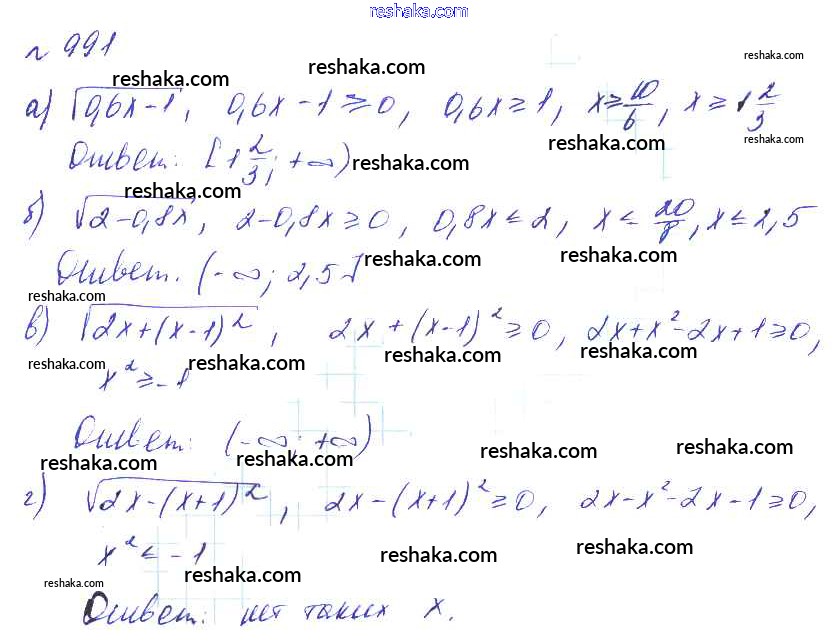 reshaka.com
№ 991
reshaka.com
reshaka.com reshaka.com
а) √(0,6x-1), 0,6x-1≥0, 0,6x≥1, x≥10/6, x≥1 2/3
reshaka.com
Ответ: [1 2/3; +∞) reshaka.com
reshaka.com
б) √(2-0,8x), 2-0,8x≥0, 0,8x≤2, x≤20/8, x≤2,5
Ответ. (-∞; 2,5] reshaka.com reshaka.com
reshaka.com
в) √(2x+(x-1)²), 2x+(x-1)²≥0, 2x+x²-2x+1≥0,
reshaka.com reshaka.com reshaka.com reshaka.com
x²≥-1
Ответ: (-∞; +∞)
reshaka.com reshaka.com reshaka.com reshaka.com
г) √(2x-(x+1)²), 2x-(x+1)²≥0, 2x-x²-2x-1≥0,
x²≤-1 reshaka.com reshaka.com
reshaka.com reshaka.com
Ответ: нет таких x.